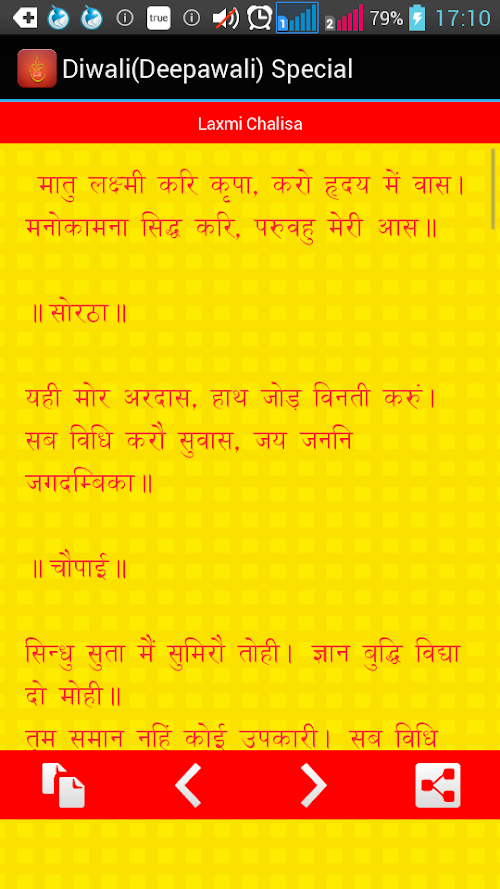 true
1
2
79%
17:10
Diwali(Deepawali) Special
Laxmi Chalisa
मातु लक्ष्मी करि कृपा, करो हृदय में वास।
मनोकामना सिद्ध करि, परुवहु मेरी आस॥
॥ सोरठा॥
यही मोर अरदास, हाथ जोड़ विनती करुं।
सब विधि करौ सुवास, जय जननि
जगदम्बिका॥
॥ चौपाई॥
सिन्धु सुता मैं सुमिरौ तोही। ज्ञान बुद्धि विद्या
दो मोही॥
तुम समान नहिं कोई उपकारी। सब विधि